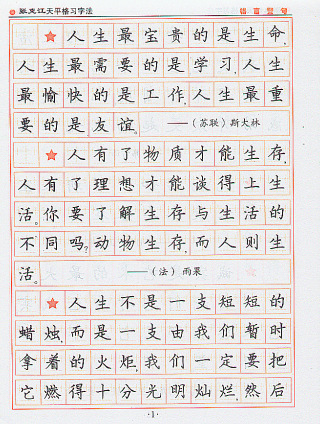 张克江天平格习字法 格言警句
★人生最宝贵的是生命,
人生最需要的是学习,人生
最愉快的是工作,人生最重
要的是友谊。 ——(苏联)斯大林
★人有了物质才能生存,
人有了理想才能谈得上生
活。你要了解生存与生活的
不同吗?动物生存,而人则生
活。 ——(法)雨果
★人生不是一支短短的
蜡烛,而是一支由我们暂时
拿着的火炬,我们一定要把
它燃得十分光明灿烂,然后
·1·